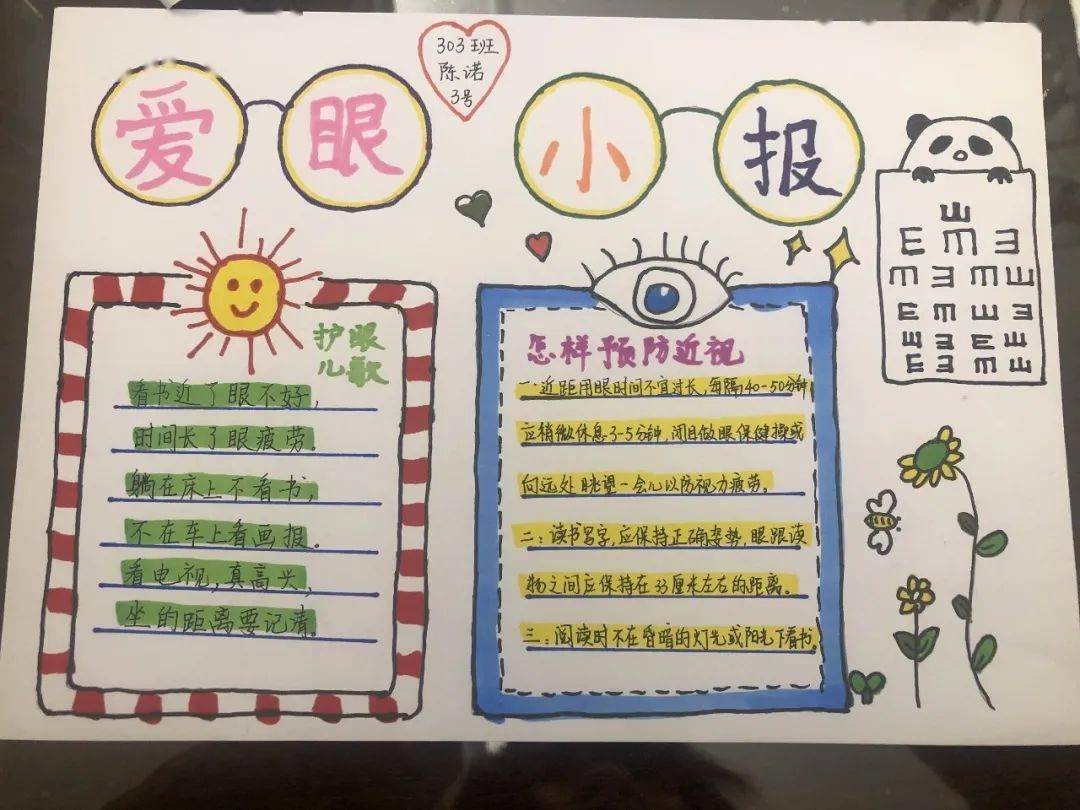 303班
陈诺
3号
爱眼小报
护眼
儿歌
看书近了眼不好，
时间长了眼疲劳。
躺在床上不看书，
不在车上看画报。
看电视，真高兴，
坐的距离要记清。
怎样预防近视
一·近距用眼时间不宜过长，每隔40-50分钟
应稍微休息3-5分钟，闭目做眼保健操或
向远处眺望一会儿以防视力疲劳。
二：读书写字，应保持正确姿势，眼跟读
物之间应保持在33厘米左右的距离。
三：阅读时不在昏暗的灯光或阳光下看书。